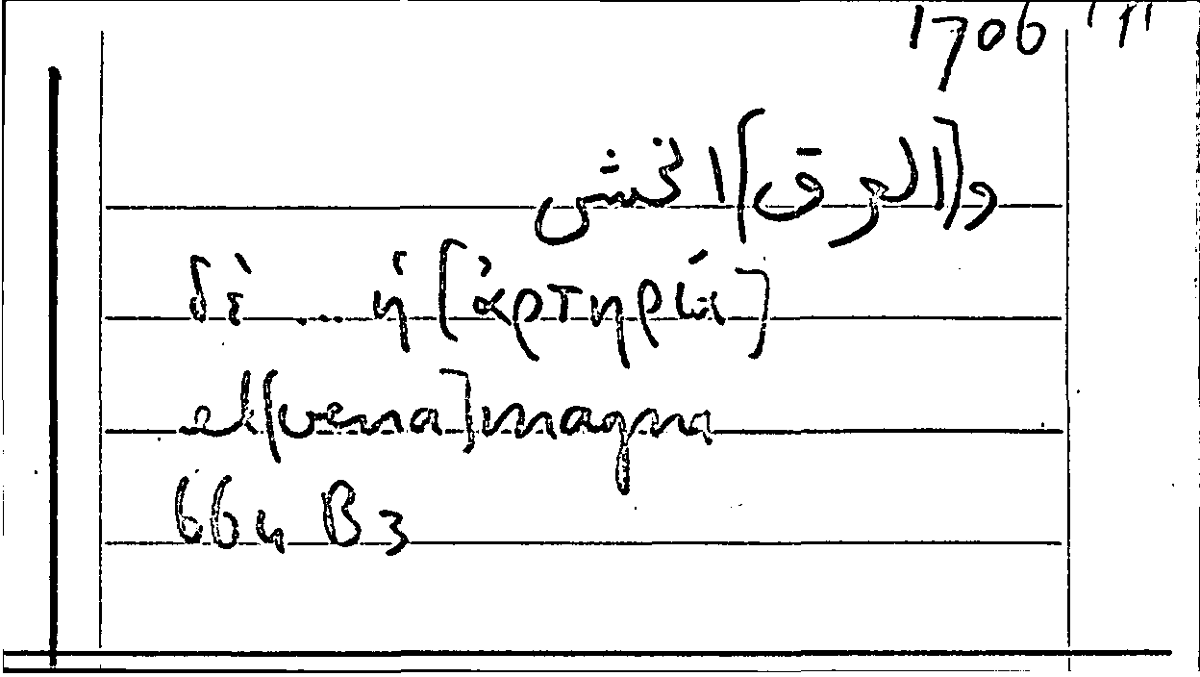 1706
و[العرق] الخشن
δὲ ... ἡ [ἀρτηρία]
et [vena] magna
664 B 3